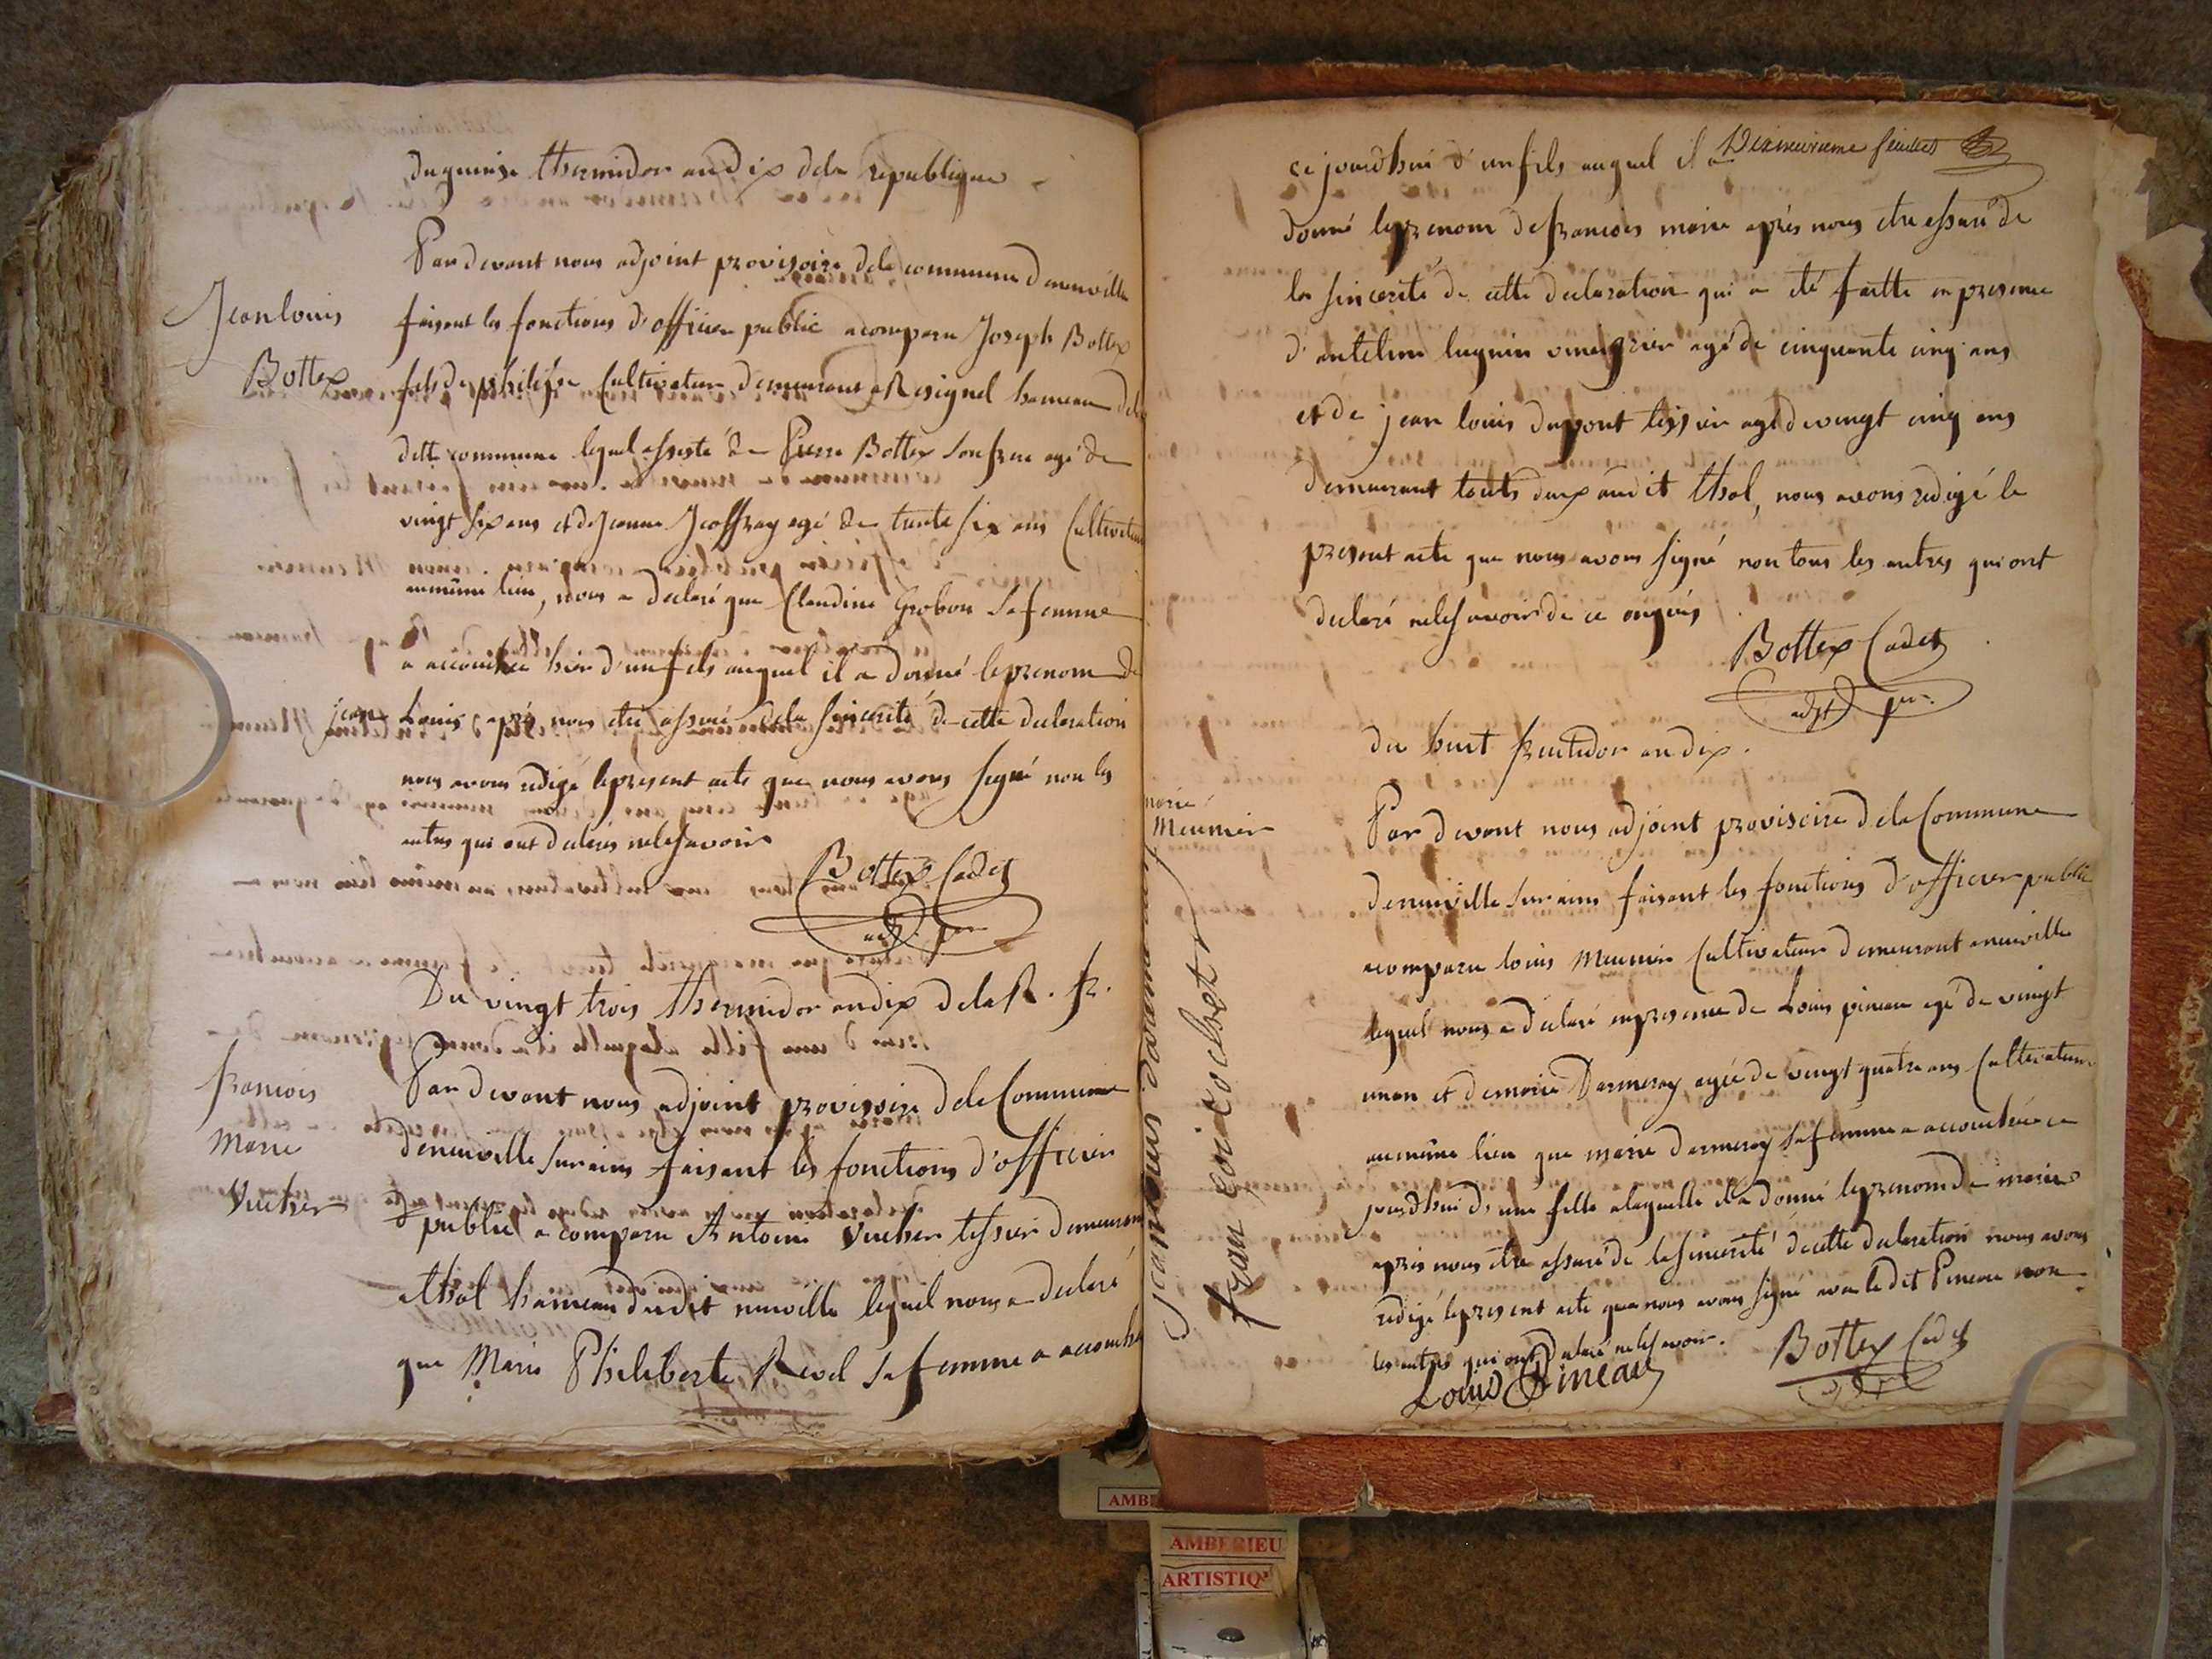 du quinse thermidor an dix dela republique
Par devant nous adjoint provisoire dela commune deneuville
Jean louis
faisant les fonctions d'officier public acomparu Joseph Bottex
Bottex
fils de philipe Cultivateur demeurant a Resignel hameau dela
ditt commune lequel assisté de Pierre Bottex son frere agé de
vingt six ans et de Jeanne Jeoffray agé de trente six ans Cultivateur
au même lieu, nous a declaré que Claudine Grobon sa femme
a accouchée hier d'un fils auquel il a donné le prenom de
jean Louis après nous etre assuré dela sincerité de cette declaration
nous avons redigé le present acte que nous avons signé non les
autres qui ont declarés nele savoir
Bottex Cadet
adjt pre
Du vingt trois thermidor an dix dela R. fr.
francois
Marie
Vucher
Par devant nous adjoint provisoire dela Commune
deneuville sur ains faisant les fonctions d'officier
public a comparu Antoine Vucher tessier demeurant
athol hameau dudit neuville lequel nous a declaré
que Marie Philiberte Revel sa femme a accouché
Dixneuvieme feuillet
ce jourdhui d'un fils auquel il a
donné le prenom de francois marie après nous etre assuré de
la sincerité de cette declaration qui a été faitte en presence
d'antelme luquin vineigrier agé de cinquante cinq ans
et de jean louis dupont tissier agé de vingt cinq ans
demeurant touts deux audit thol, nous avons redigé le
present acte que nous avons signé non tous les autres qui ont
declaré nele savoir de ce enquis
Bottex Cadet
adjt pre.
du huit fructidor an dix.
marie
Meunier
Par devant nous adjoint provisoire dela Commune
deneuville sur ains faisant les fonctions d'officier public
acomparu louis Meunier Cultivateur demeurant a neuville
lequel nous a declaré en presence de Louis pineau agé de vingt
un an et de marie Darmeray agée de vingt quatre ans Cultivateurs
au même lieu que marie darmeray sa femme a accouchée ce
jourdhui d'une fille alaquelle il a donné le prenom de marie
après nous être assuré de la sincerité de cette declaration nous avons
redigé le present acte que nous avons signé avec le dit Pineau non
les autres qui ont declaré nele savoir.
Louis Pineau
Bottex Cadet
AMBERIEU
ARTISTIQ